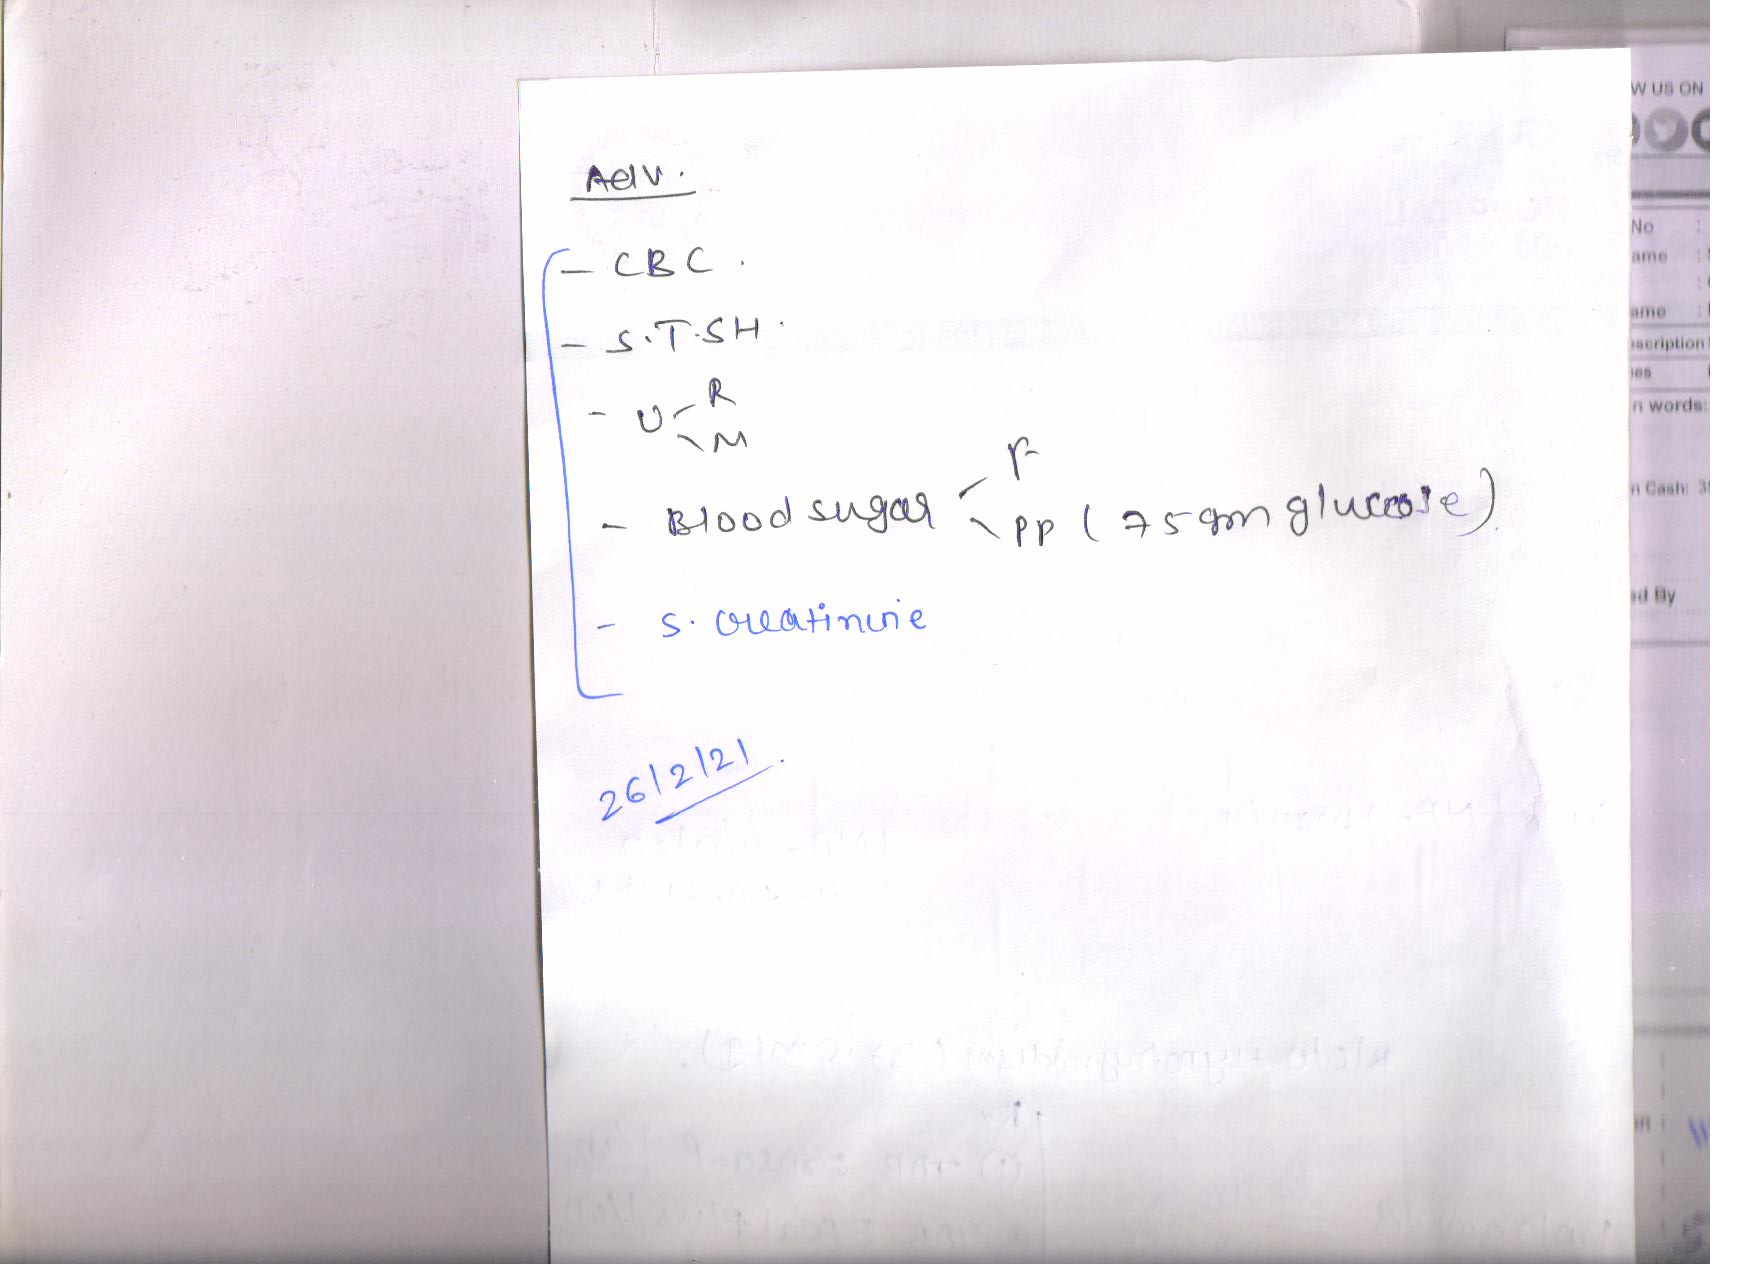 Adv.
- CBC.
- S.T.SH.
- U < R
M
- Blood sugar < F
PP (75 gm glucose)
- S. creatinine
26/2/21.
W US ON
No :
ame :
:
ame :
scription
es
n words:
n Cash: 3
ed By